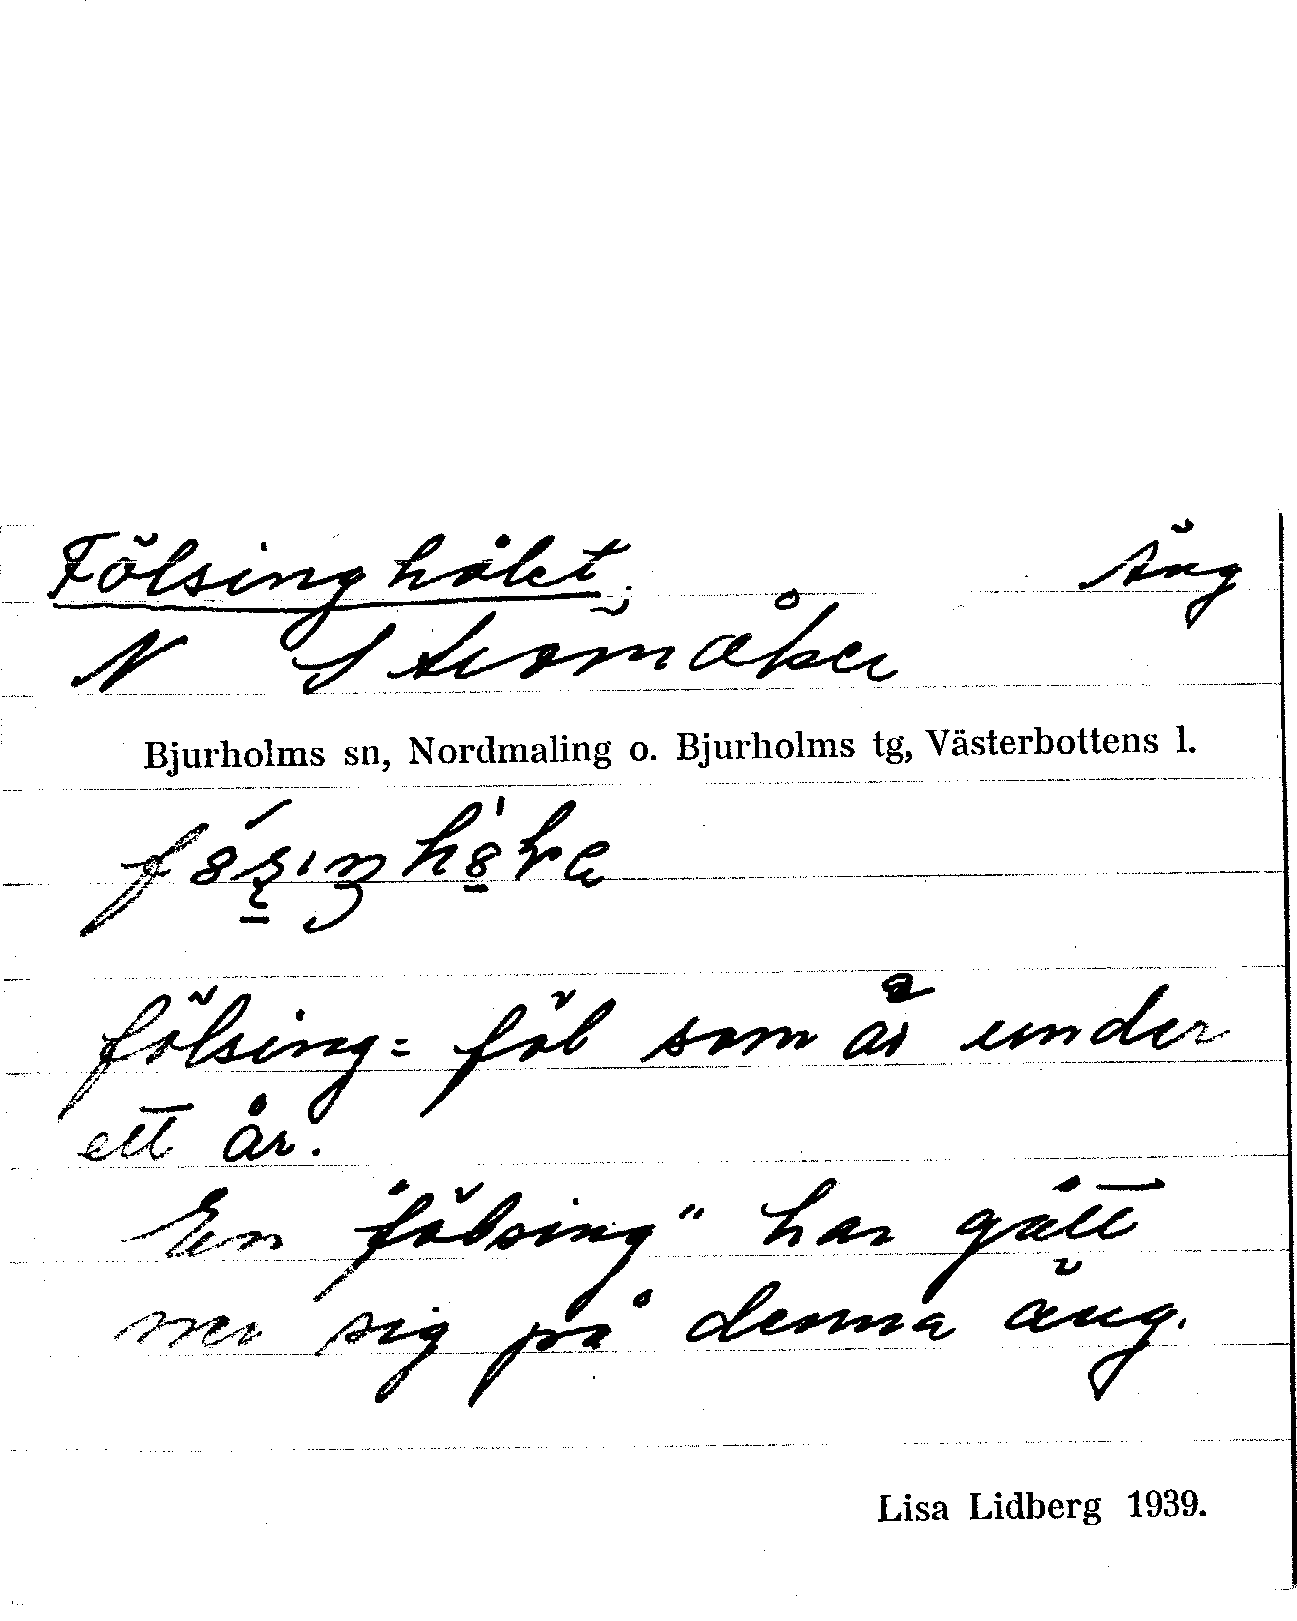 Fölsinghålet, Äng
N Strömåker
Bjurholms sn, Nordmaling o. Bjurholms tg, Västerbottens l.
fölsing = föl som är under
ett år.
En "fölsing" har gått
ner sig på denna äng.
Lisa Lidberg 1939.